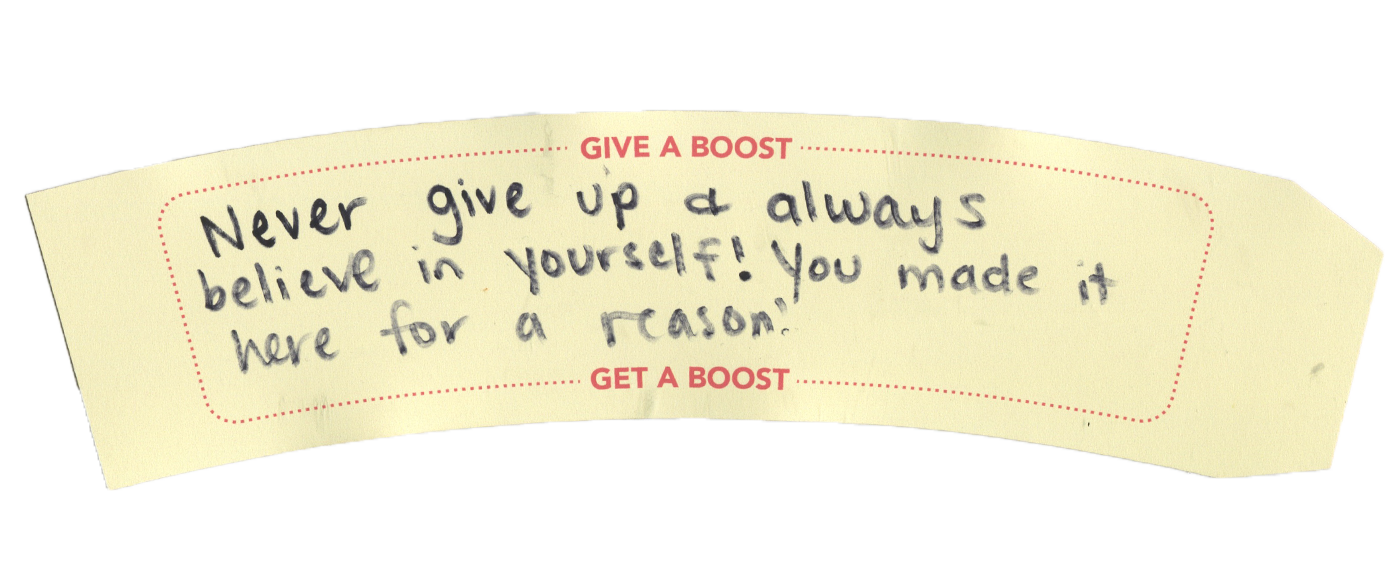 GIVE A BOOST
Never give up & always
believe in yourself! You made it
here for a reason!
GET A BOOST